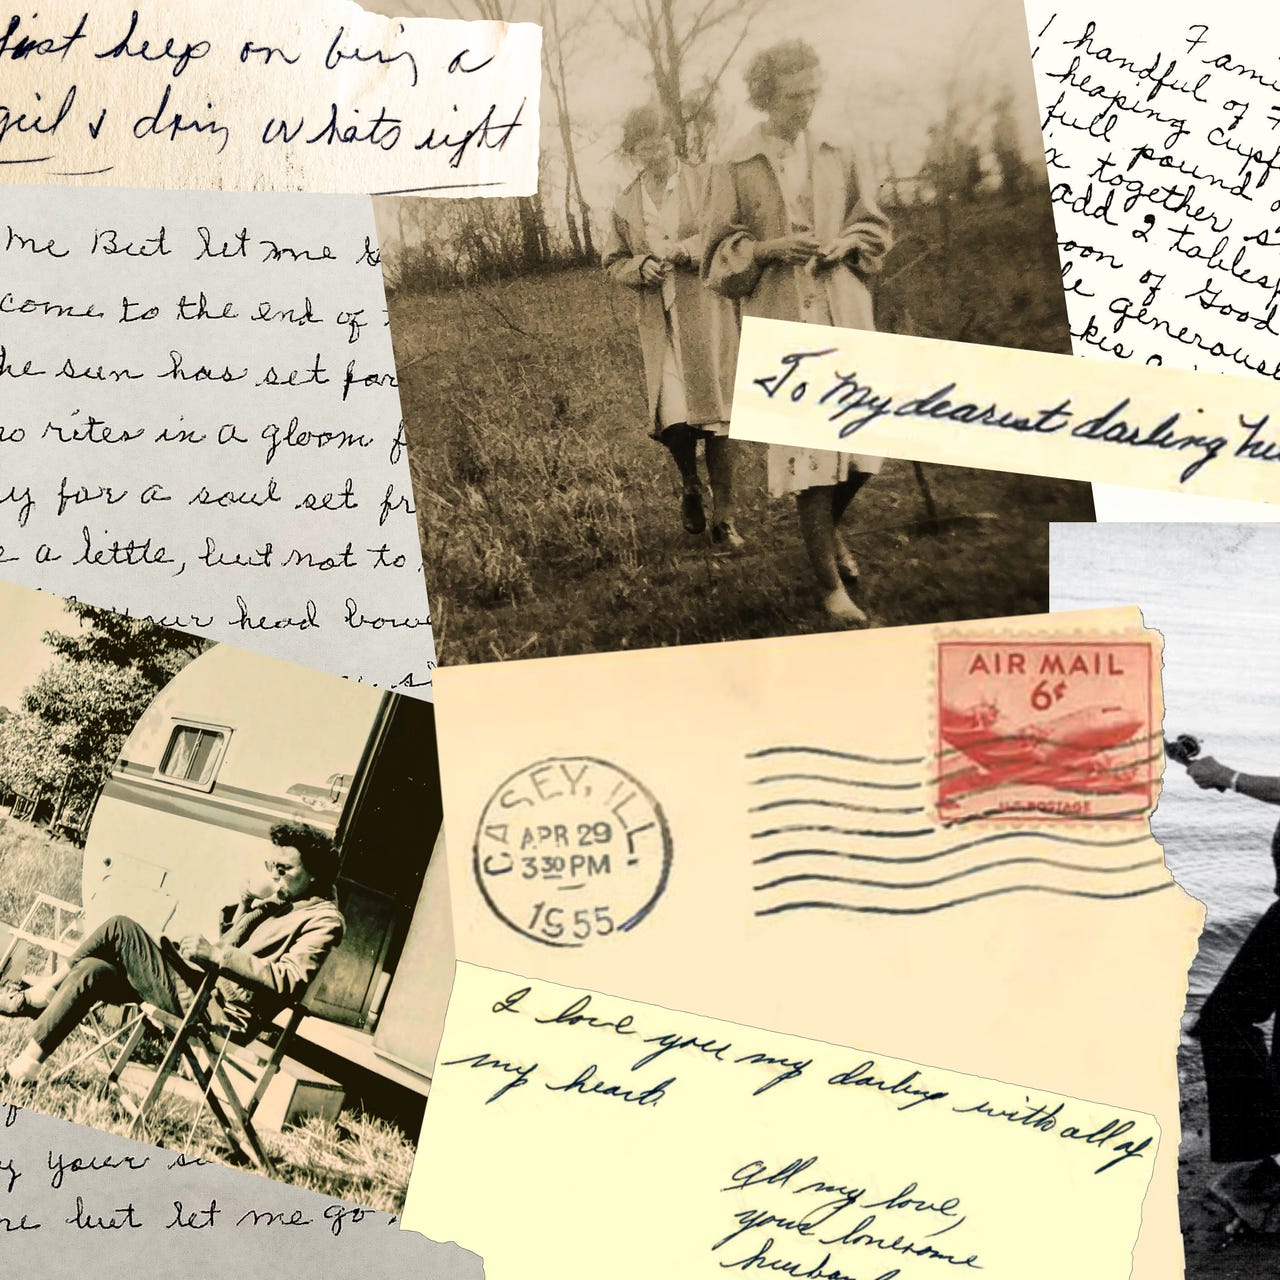 Just keep on being a
girl & doing whats right
me But let me
come to the end of
he sun has set for
no rites in a gloom
for a soul set
a little, but not to
your head
your
but let me go.
7
1 handful of
heaping
full pound
together
add 2
of Good
generously
To My dearest darling
AIR MAIL
6¢
U.S. POSTAGE
CASEY, ILL.
APR 29
3 30 PM
1955
I love you my darling with all of
my heart.
All my love,
your lonesome